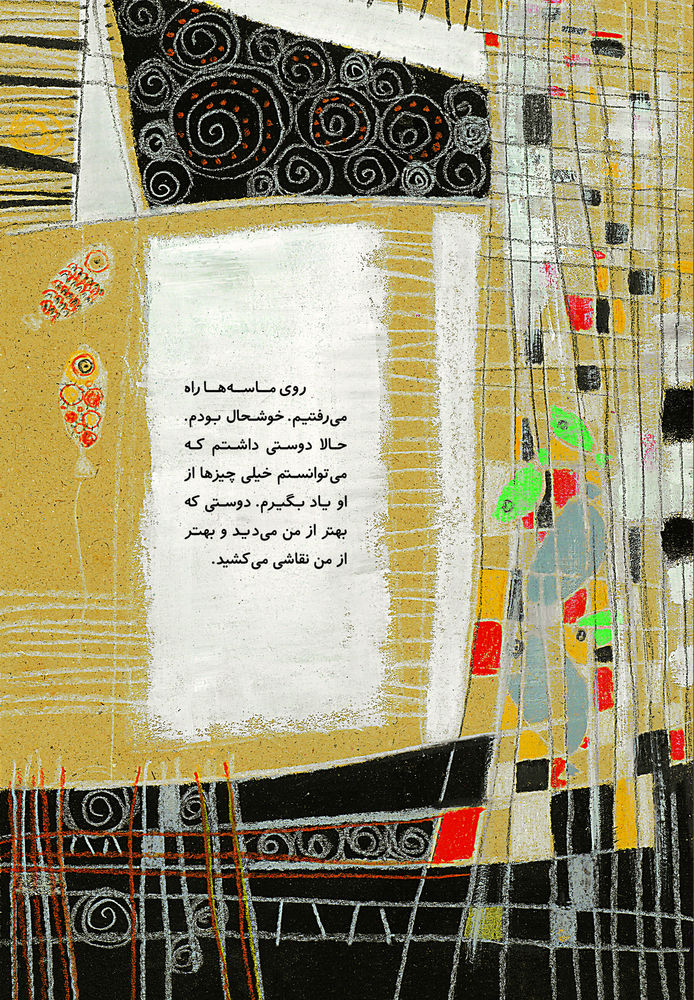 روی ماسه‌ها راه
می‌رفتیم. خوشحال بودم.
حالا دوستی داشتم که
می‌توانستم خیلی چیزها از
او یاد بگیرم. دوستی که
بهتر از من می‌دید و بهتر
از من نقاشی می‌کشید.